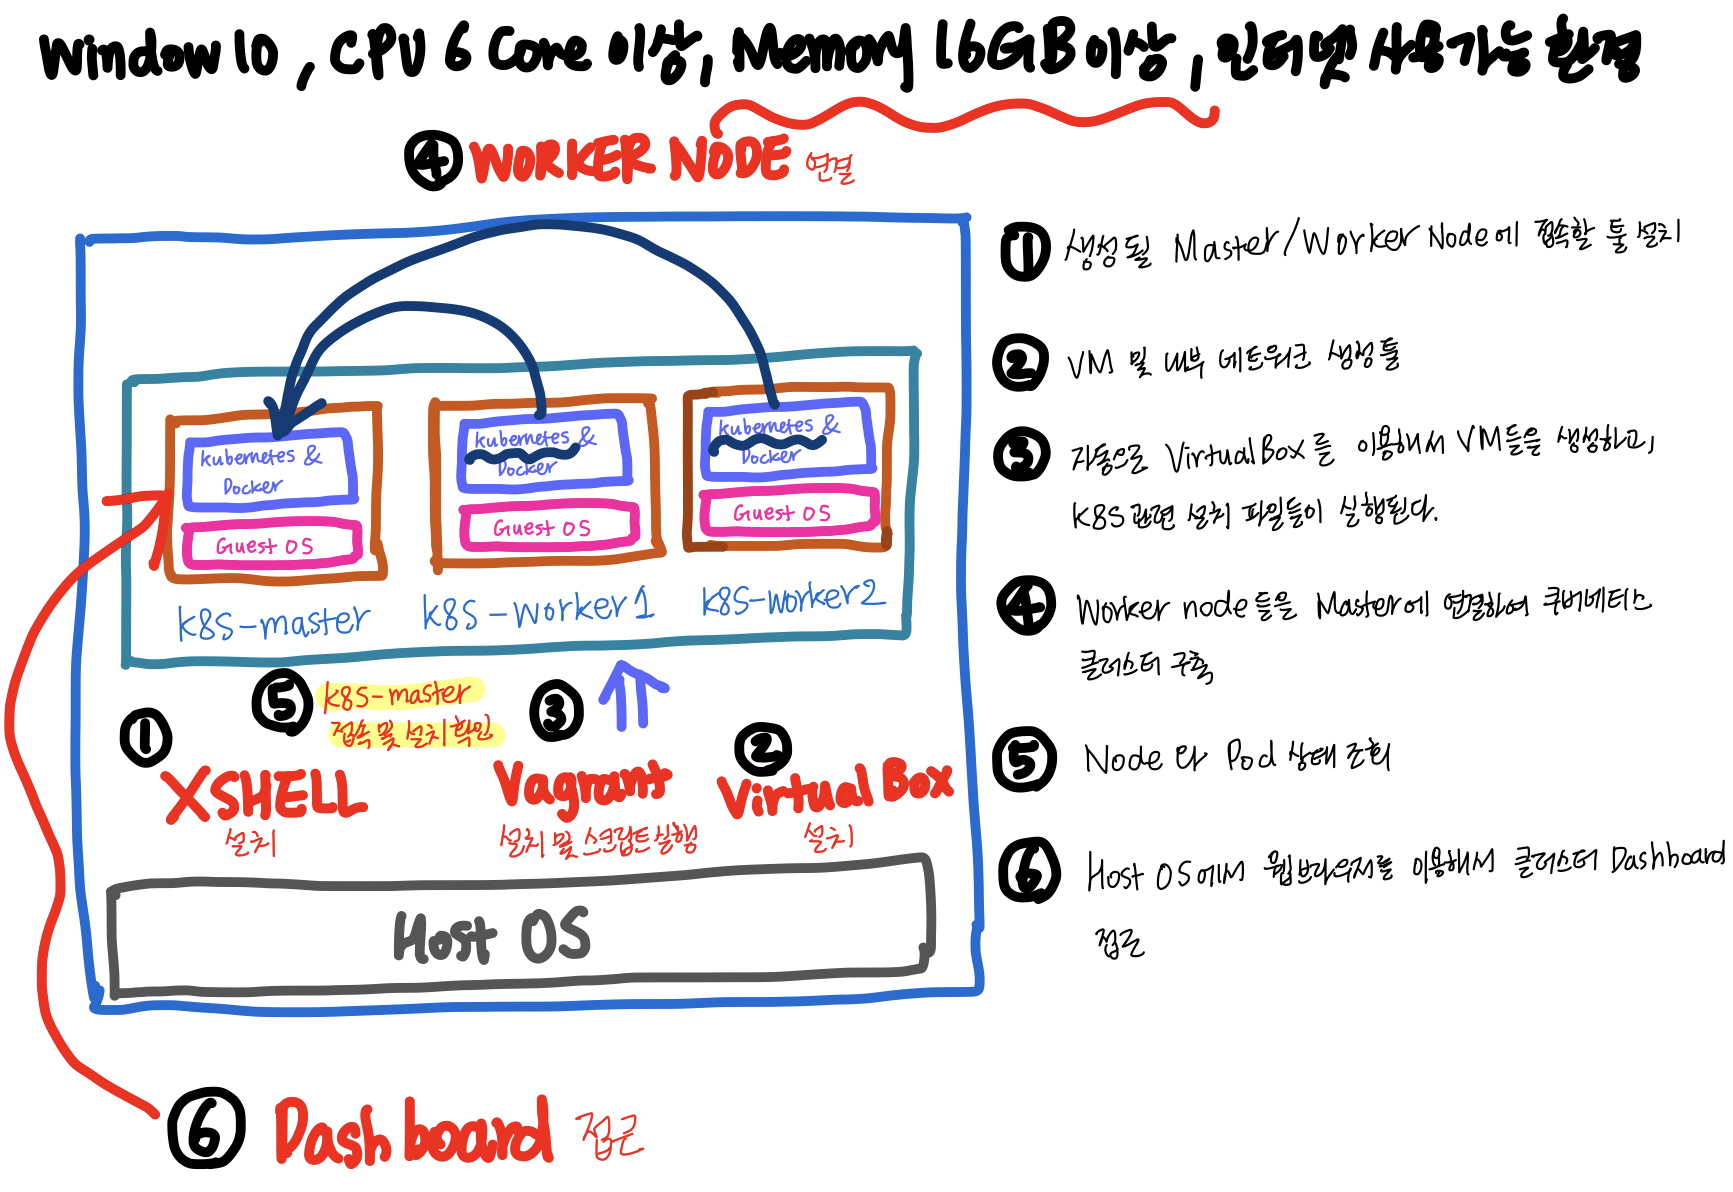 Window 10 , CPU 6 Core 이상, Memory 16GB 이상, 인터넷 사용가능 환경
④ WORKER NODE 연결
kubernetes &
Docker
Guest OS
k8S-master
kubernetes &
Docker
Guest OS
k8S-worker1
kubernetes &
Docker
Guest OS
k8S-worker2
⑤ k8S-master
접속 및 설치 확인
① XSHELL
설치
③ Vagrant
설치 및 스크립트 실행
② Virtual Box
설치
Host OS
⑥ Dashboard 접근
① 생성될 Master/Worker Node에 접속할 툴 설치
② VM 및 내부 네트워크 생성툴
③ 자동으로 VirtualBox를 이용해서 VM들을 생성하고,
K8S관련 설치 파일들이 실행된다.
④ Worker node들을 Master에 연결하여 쿠버네티스
클러스터 구축
⑤ Node 와 Pod 상태 조회
⑥ Host OS에서 웹브라우저를 이용해서 클러스터 Dashboard
접근